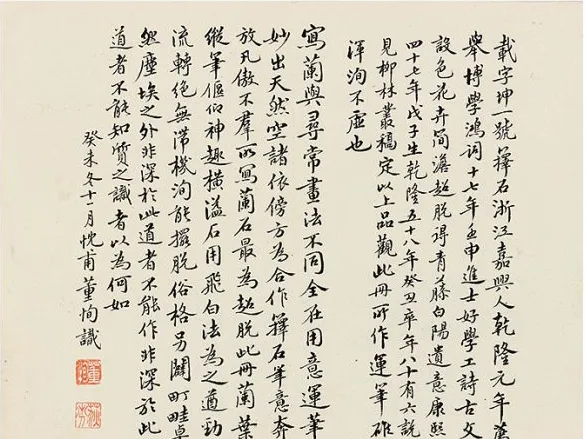 載字坤一號蘀石浙江嘉興人乾隆元年薦
舉博學鴻詞十七年壬申進士好學工詩古文
設色花卉簡澹超脫得青藤白陽遺意康熙
四十七年戊子生乾隆五十八年癸丑卒年八十有六說
見柳林叢稿定以上品觀此冊所作運筆雄
渾洵不虛也
寫蘭與尋常畫法不同全在用意運筆
妙出天然空諸依傍方為合作蘀石筆意奔
放兀傲不羣所寫蘭石最為超脫此冊蘭葉
縱筆偃仰神趣橫溢石用飛白法為之遒勁
流轉絕無滯機洵能擺脫俗格另闢町畦卓
然塵埃之外非深於此道者不能作非深於此
道者不能知質之識者以為何如
癸未冬十一月忱甫董恂識
董恂